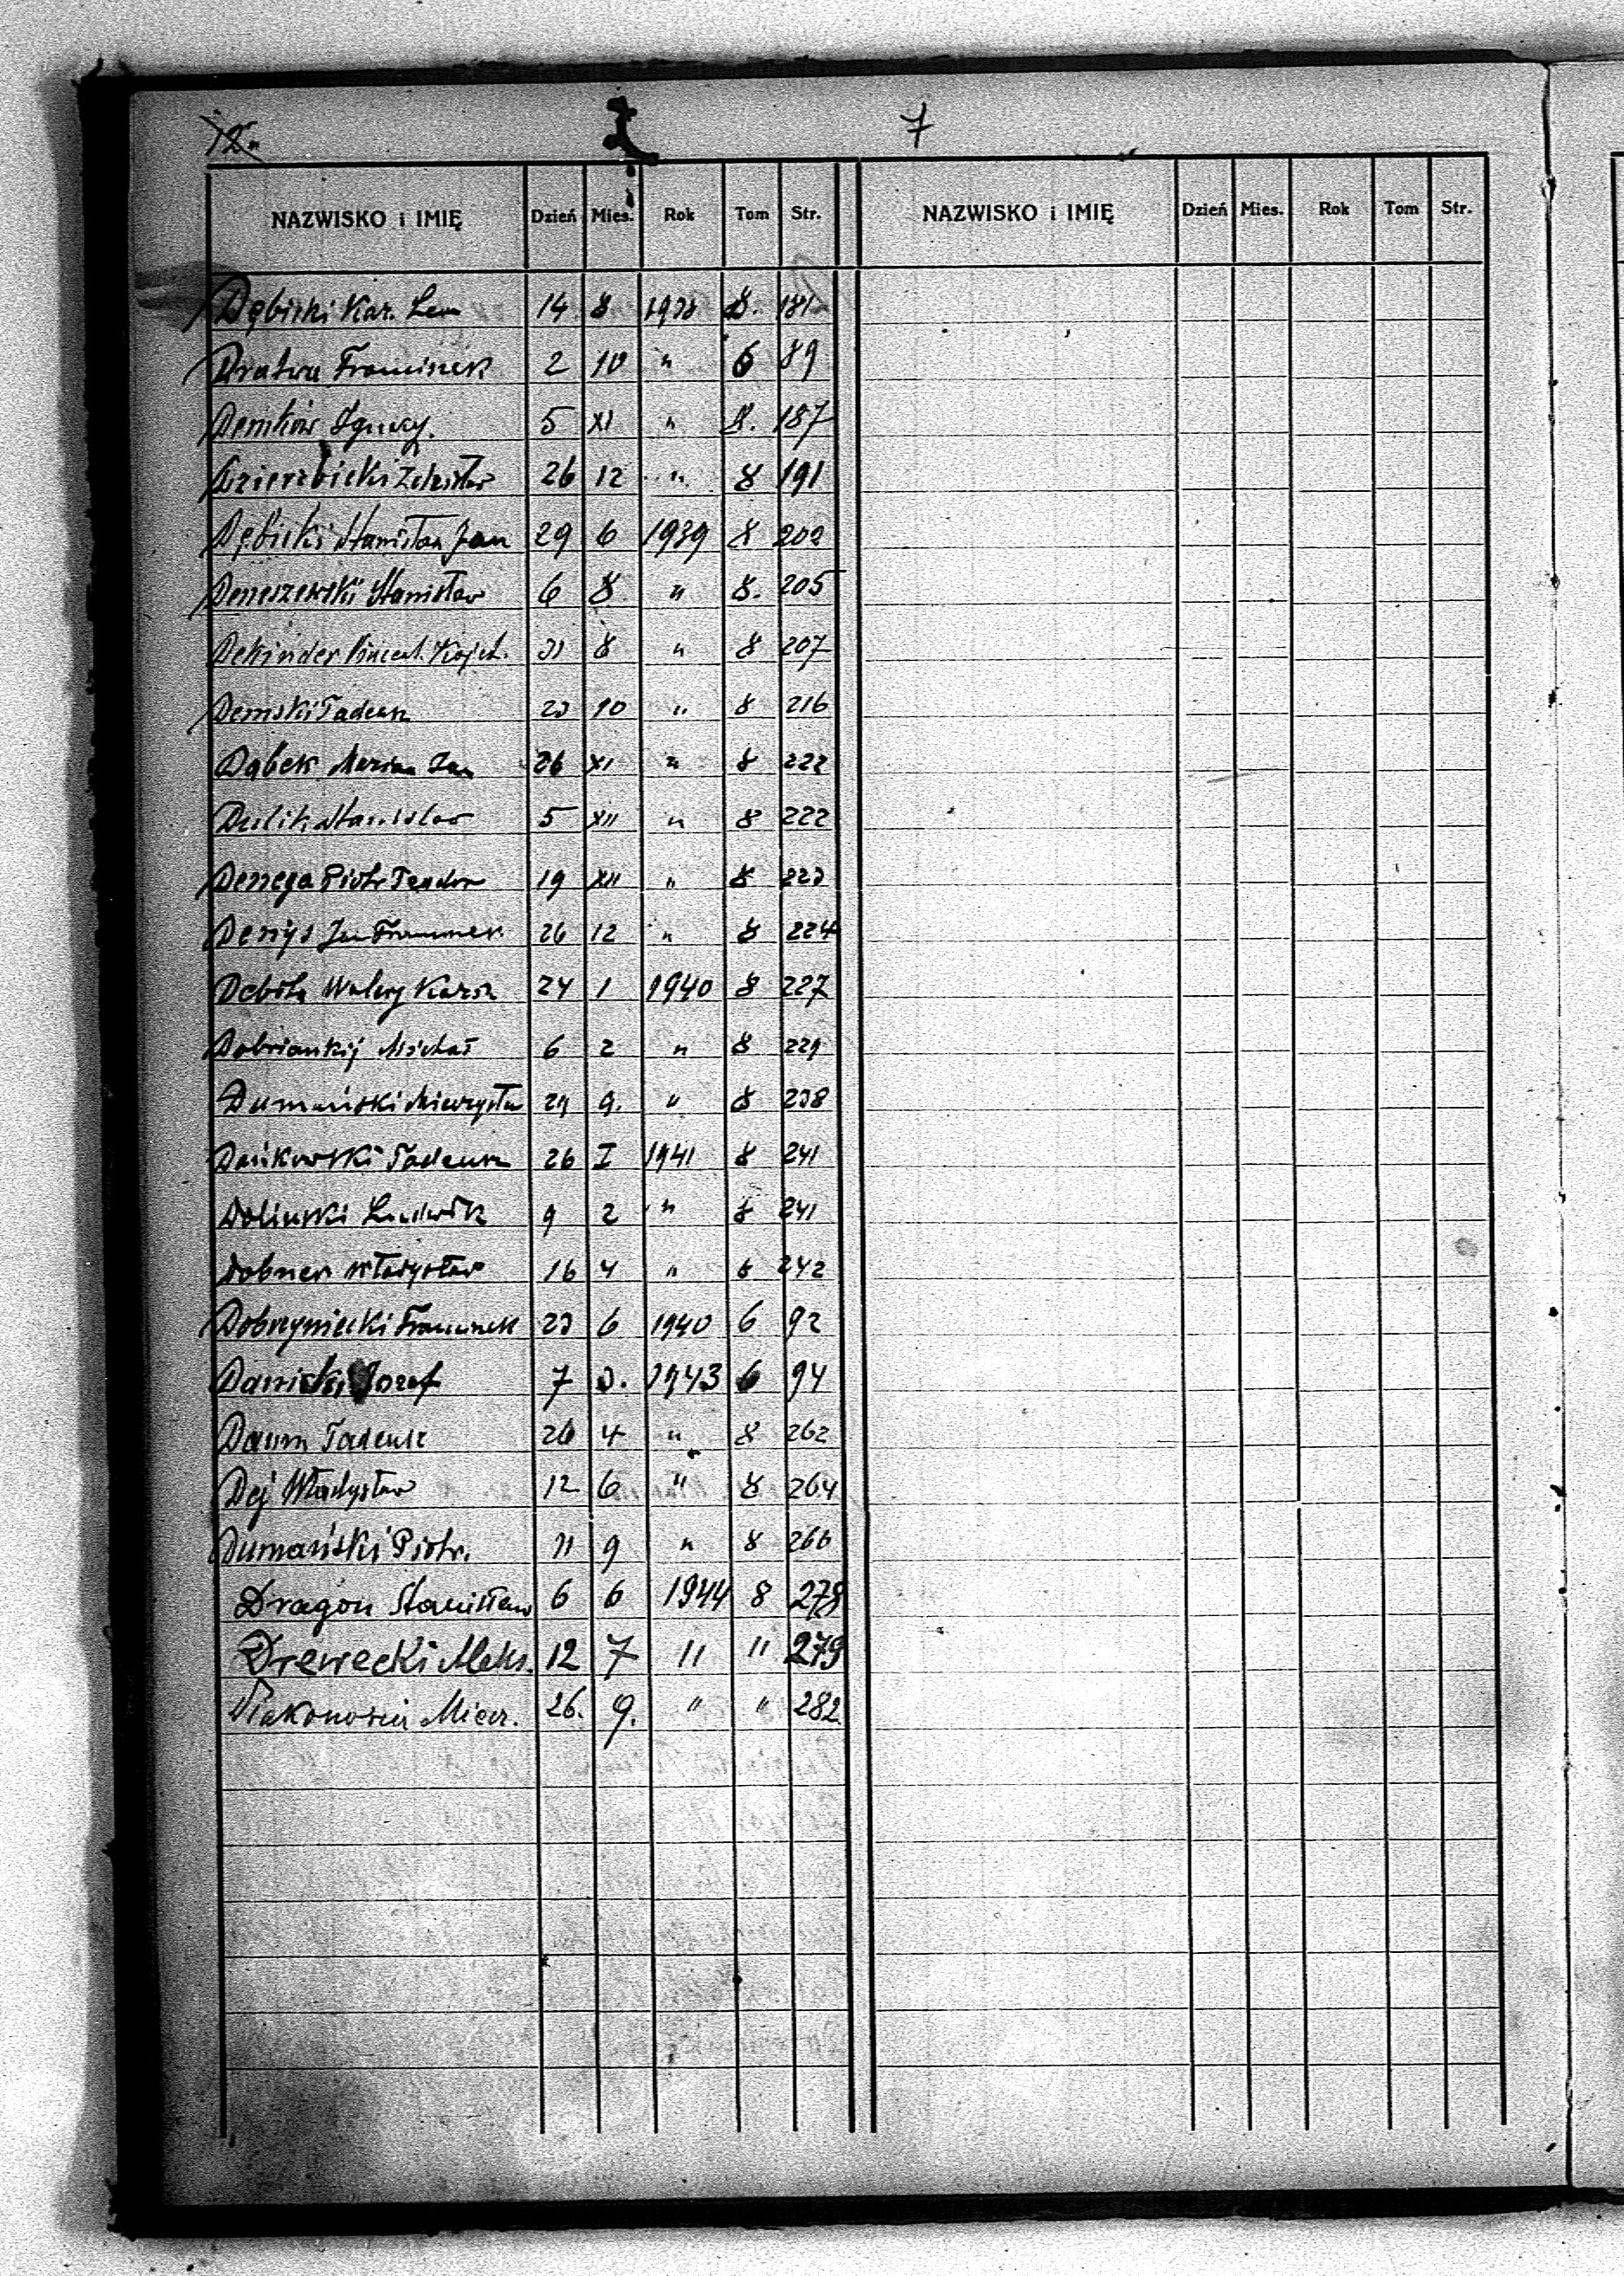 7
NAZWISKO i IMIĘ Dzień Mies. Rok Tom Str. NAZWISKO i IMIĘ Dzień Mies. Rok Tom Str.
Dębicki Kaz. Leon 14 8 1938 8. 181
Dratwa Franciszek 2 10 " 6 89
Deńków Ignacy. 5 XI " 8. 187
Dzierzbicki Zdzisław 26 12 " 8 191
Dębicki Stanisław Jan 29 6 1939 8 202
Deneszewski Stanisław 6 8 " 8. 205
Dekinder 31 8 " 8 207
Demski Tadeusz 23 10 " 8 216
Dąbek Marian Jan 26 XI " 8 222
Stanisław 5 XII " 8 222
Piotr Teodor 19 XII " 8 223
Denys Jan Franciszek 26 12 " 8 224
Walery 24 1 1940 8 227
Michał 6 2 " 8 229
Dumański Mieczysław 29 9. " 8 238
Tadeusz 26 I 1941 8 241
Doliński Ludwik 9 2 " 8 241
Dobner Władysław 16 4 " 8 242
Dobrzyniecki Franciszek 23 6 1940 6 92
Józef 7 3. 1943 6 94
Daum Tadeusz 26 4 " 8 262
Dej Władysław 12 6 " 8 264
Dumański Piotr. 9 " 8 266
Dragon Stanisław 6 6 1944 8 278
Drewecki Aleks. 12 7 " " 279
Miecz. 26. 9. " " 282